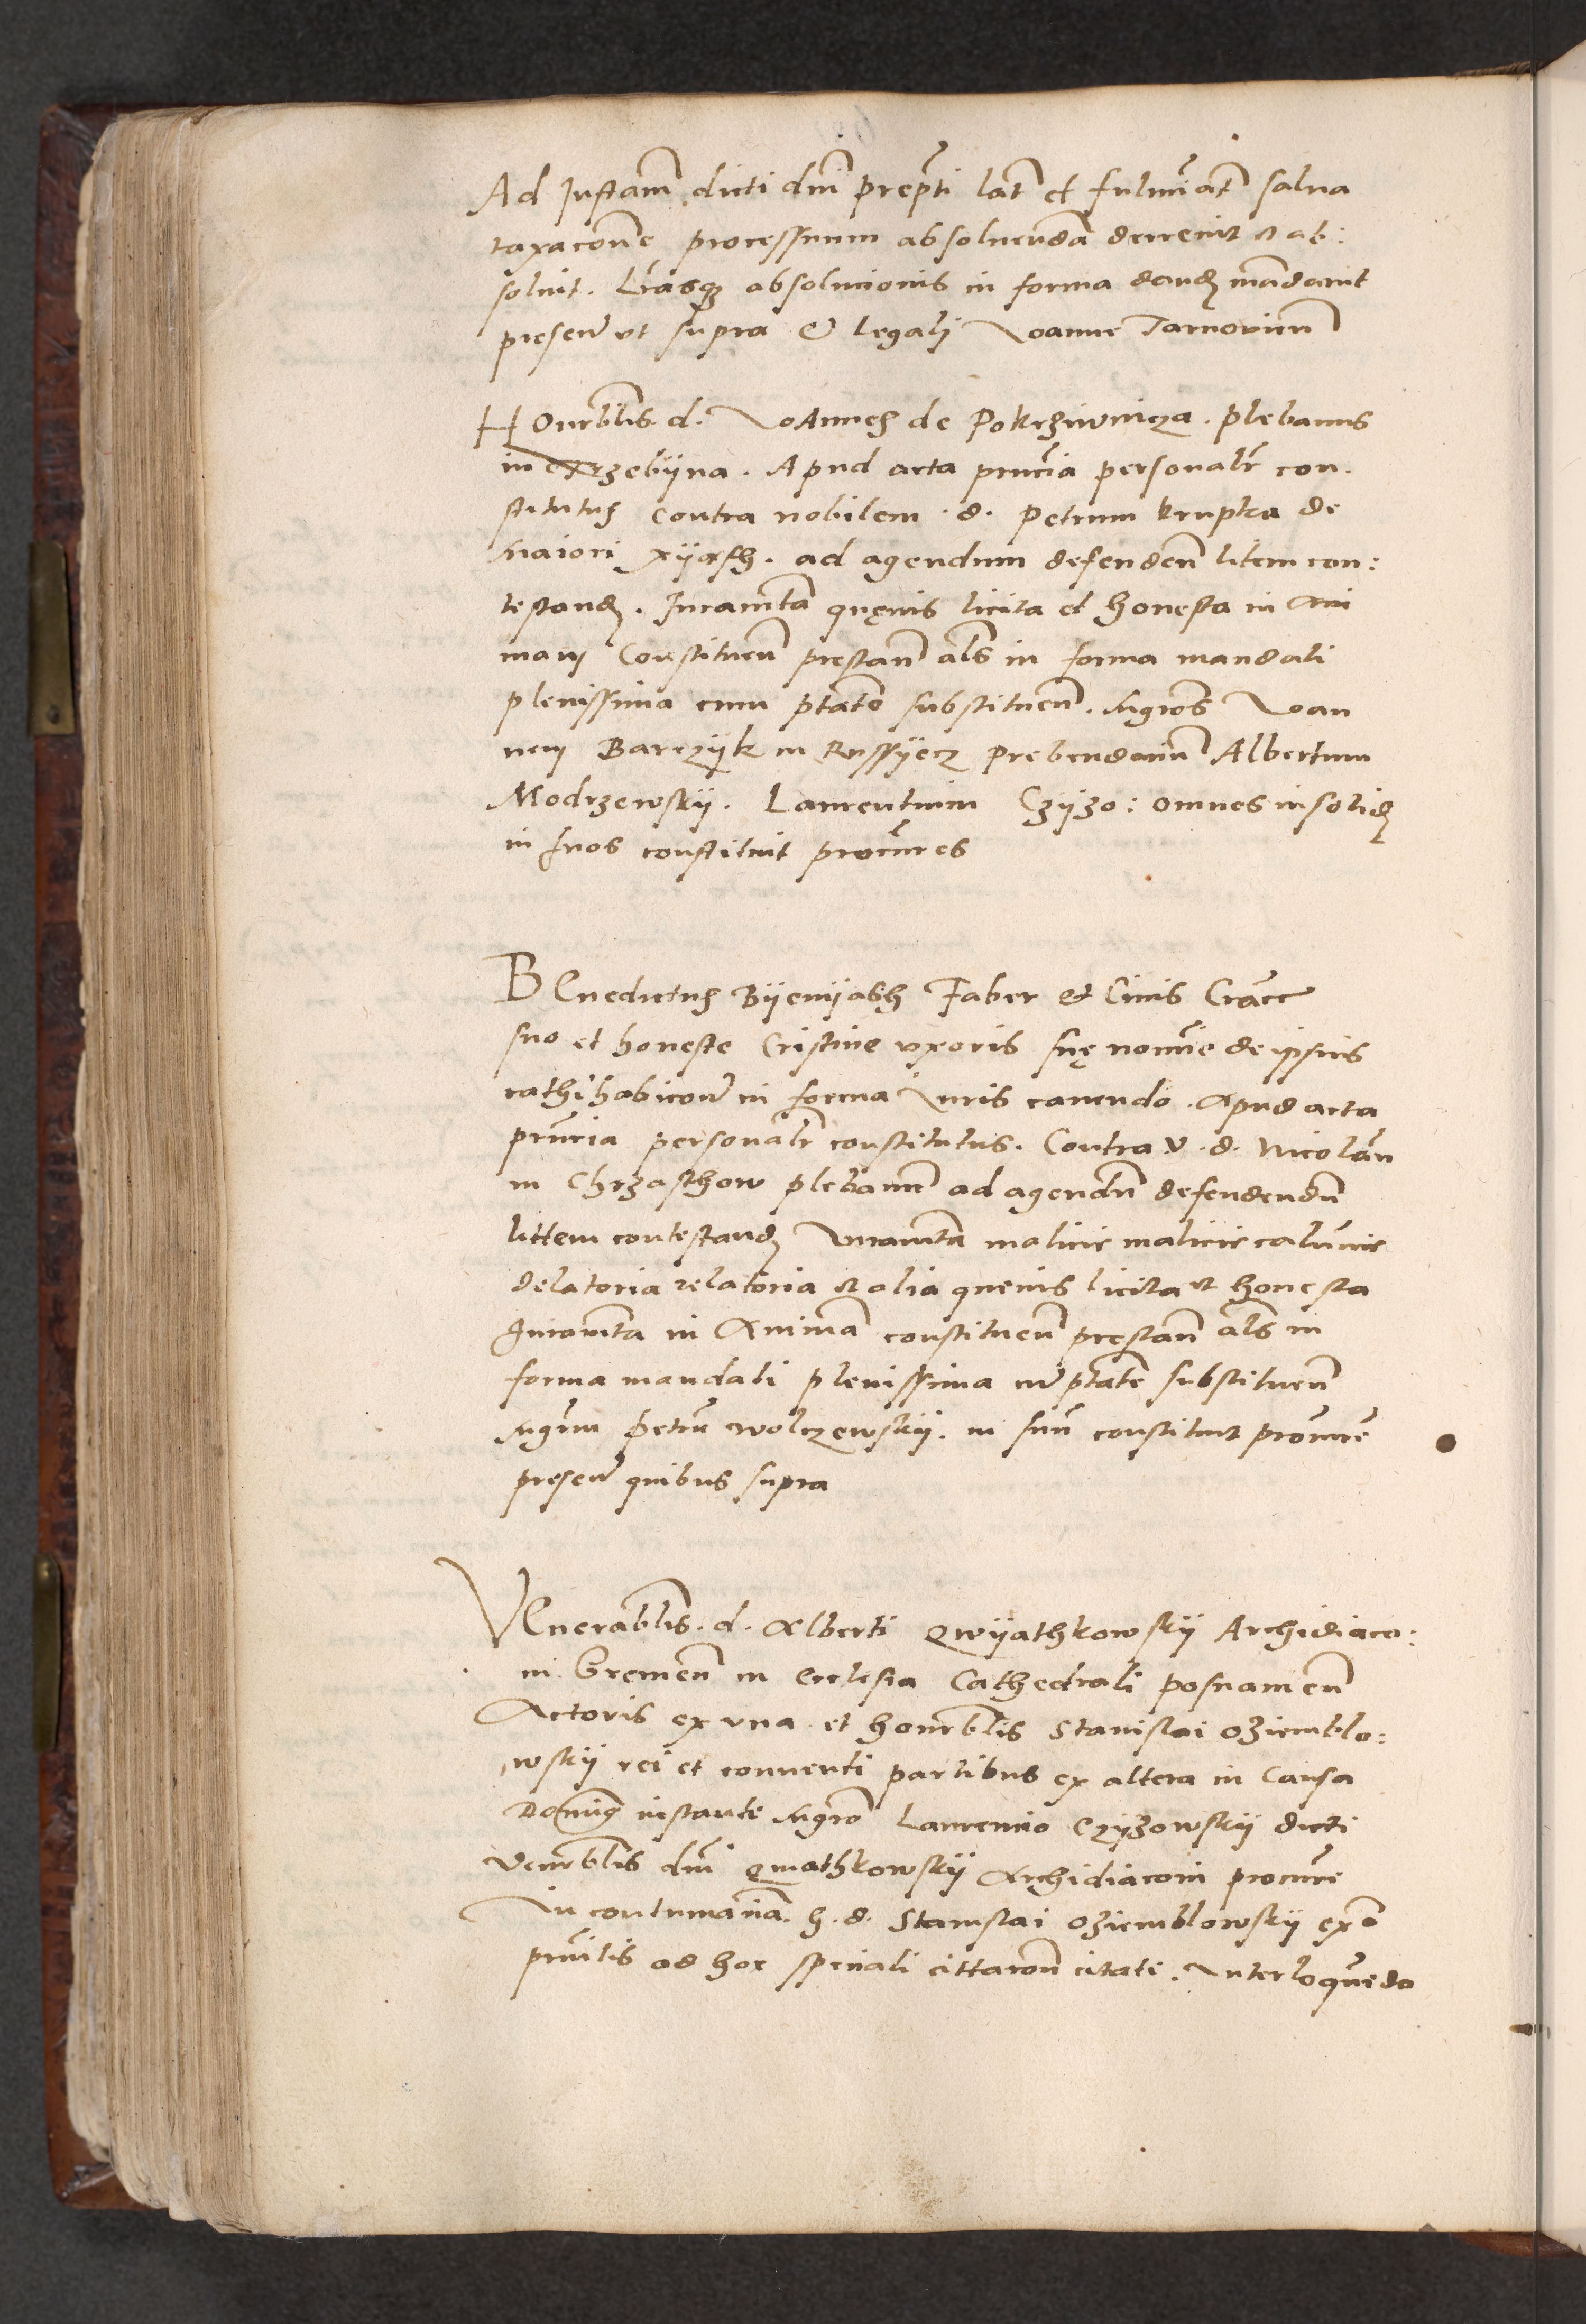 Ad Instam dicti dni prepti lat et fulmiat salua
taxacione processuum absoluendã decreuit et ab:
soluit. Lrasq absolucionis in forma dand mãdauit
presen vt supra et legali Ioanne Tarnouien
HOnrblis d. Ioannes de Pokrziwnicza. plebanus
in Trzebijna. Apud acta prncia personalr con.
stitutus contra nobilem d. Petrum krupka de
maiori xijasch. ad agendum defendeñ litem con:
testand. Iuramta quęuis licita et honesta in Ani
mam Constitueñ prestañ als in forma mandati
plenissima cum ptate substitueñ. Mgros Ioan
nem Barczijk in Russijecz prebendariũ Albertum
Modrzewskij. Laurentium Czijzo: omnes insolid
in suos constituit procures
BEnedictus Bijenijasch Faber et Ciuis Cracc
suo et honeste Cristine vxoris suę nomie de ipsius
rathihabicioe in forma Iuris cauendo. Apud acta
prncia personalr constitutus. Contra v. d. Nicolaũ
in Chrzasthow plebanum ad agendũ defendendũ
littem contestand Iuramta malicie malicie calumie
delatoria relatoria et alia queuis licita et honesta
Iuramta in Animã constitueñ prestañ als in
forma mandati plenissima cũ ptate substitueñ
Mgrum petrũ wolczewskij. in suũ constituit procure
presen quibus supra
VEnerablis. d. Alberti Qwijathkowskij Archidiaco:
ni Sremeñ in Ecclesia Cathedrali posnanieñ
Actoris ex vna et honrblis Stanislai oziemblo:
wskij rei et conuenti partibus ex altera in Causa
instante Mgro Laurencio Czijzowskij dicti
Venrblis dni Qwiathkowskij Archidiaconi procure
In contumaciã. h. d. Stanislai oziemblowskij ex
prñtis ad hoc speciali cittacioñ citati. Interloquẽdo